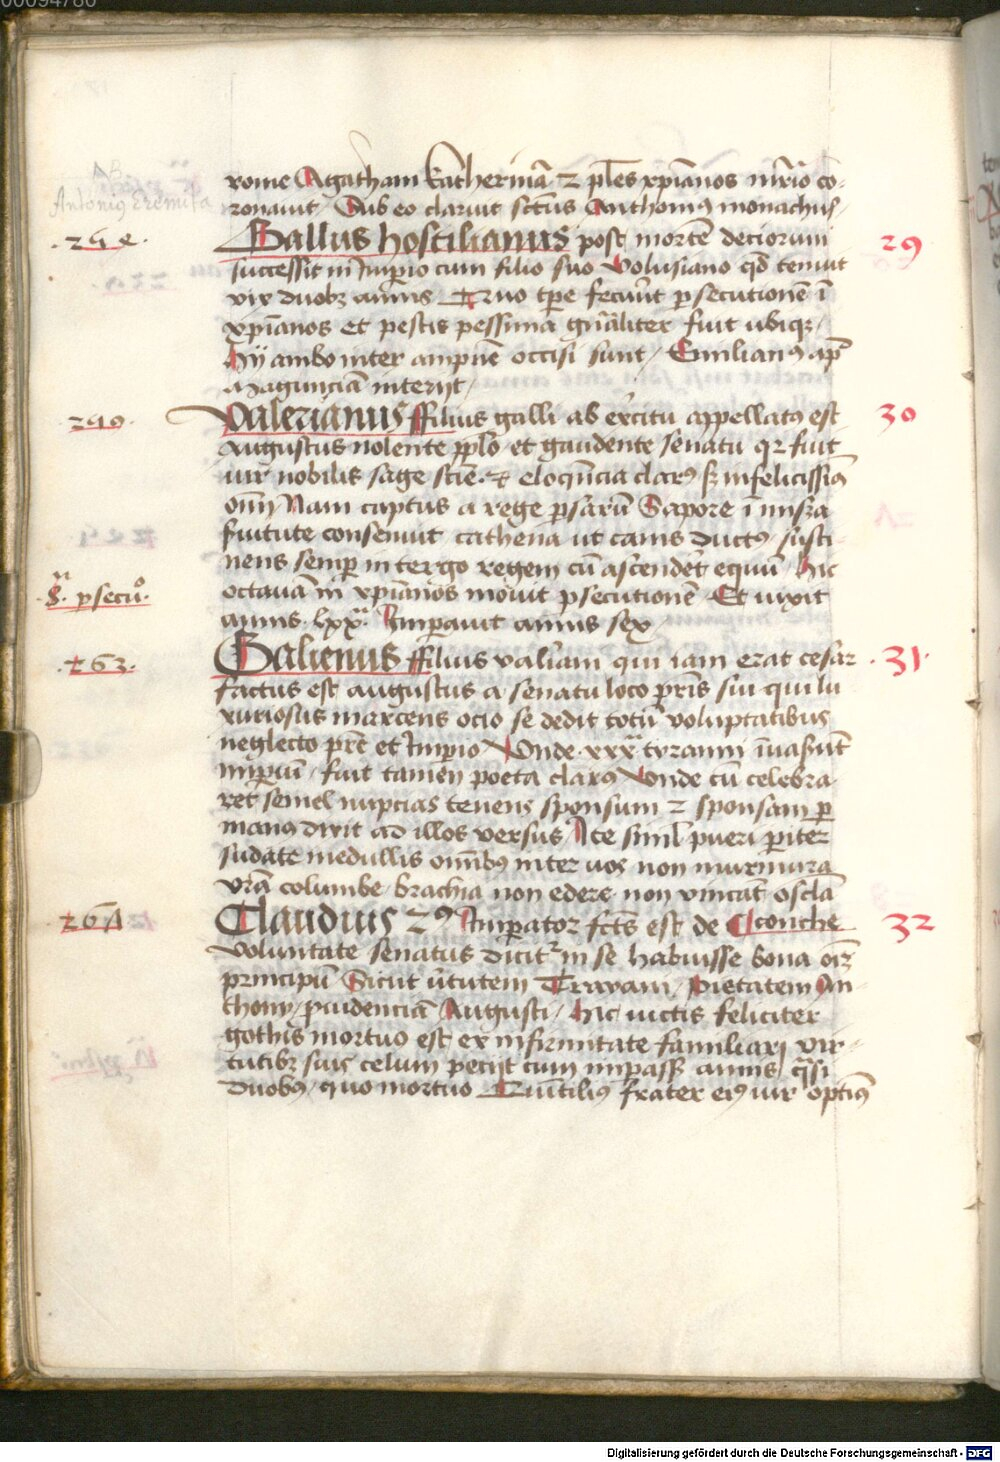 rome Agatham katherinā ⁊ pl̄es xp̄ianos mr̄io co-
ronauit / Sub eo claruit sctūs Anthonius monachus
AB
Antonius Eremita
Gallus hostilianus post mortē deciorum
29
successit in Imp̄io cum filio suo Volusiano qd̄ tenuit
vix duobꝫ annis
xp̄ianos et pestis pessima gn̄aliter fuit ubiqꝫ /
hij ambo inter ampnē occisi sunt / Emilianꝰ ap̄
Magunciā interijt /
.240.
Valerianus ffilius galli ab ex̄citu appellatꝰ est
30
Augustus nolente pp̄lo et gaudente senatu qꝛ fuit
uir nobilis sage
om̄i Nam captus a rege psarū Sapore ī mis̄a
s̄uitute consenuit cathena ut canis ductꝰ / susti-
nens semp̄ in tergo regem cū asc̄enderet equū hic
.8. psecuº.
octauā in xp̄ianos mouit psecutionē Et vixit
annis . lxx. Imp̄auit annis sex
.263.
Galienus ffilius valīani qui iam erat cesar
.31.
factus est augustus a senatu loco pr̄is sui qui lu-
xuriosus marcens ocio se dedit totū voluptatibus
neglecto pr̄e et Imp̄io Vnde . xxx . tyranni īuasūt
imp̄iū / fuit tamen poeta clarꝰ Vnde cū celebra-
ret semel nupcias tenens sponsum ⁊ sponsam p̄
manꝰ dixit ad illos versus Ite siml̄ pueri p̄iter
sudate medullis om̄ibꝰ inter uos non murmura
vr̄a columbe brachia non edere non vincāt oscl̄a
.269.
Claudius 2ꝰ Imp̄ator fctꝰ est de
32
voluntate senatus dicitꝛ in se habuisse bona oīꝫ
principū Sicut v̄tutem Trayani / Pietatem An-
thony / prudenciā Augusti / hic victis feliciter
gothis mortuo est ex infirmitate familiari vir-
tutibꝫ suis celum petijt cum imp̄asꝫ annis q̄si
duobꝰ / quo mortuo Quintiliꝰ frater eiꝰ uir optimꝰ
Digitalisierung gefördert durch die Deutsche Forschungsgemeinschaft - DFG